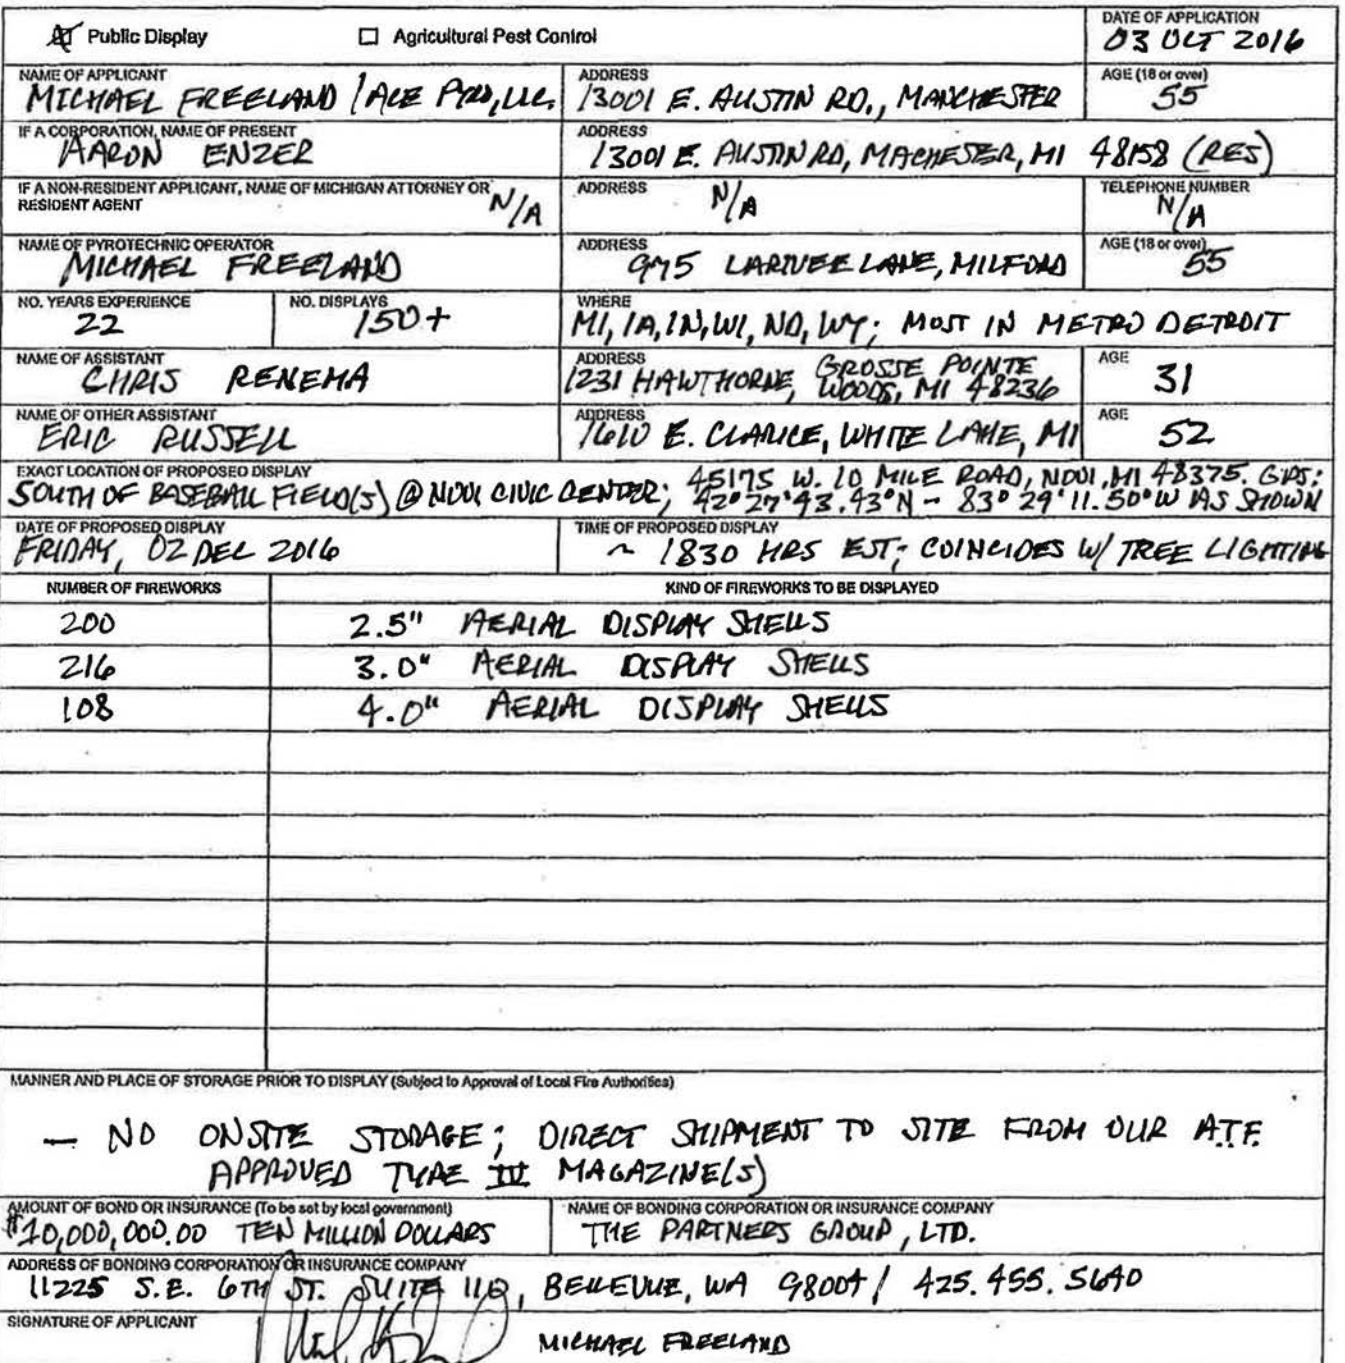 Public Display
Agricultural Pest Control
DATE OF APPLICATION
03 OCT 2016
NAME OF APPLICANT
MICHAEL FREELAND / ACE PYRO, LLC.
ADDRESS
13001 E. AUSTIN RD., MANCHESTER
AGE (18 or over)
55
IF A CORPORATION, NAME OF PRESENT
AARON ENZER
ADDRESS
13001 E. AUSTIN RD, MACHESTER, MI 48158 (RES)
IF A NON-RESIDENT APPLICANT, NAME OF MICHIGAN ATTORNEY OR
RESIDENT AGENT
N/A
ADDRESS
N/A
TELEPHONE NUMBER
N/A
NAME OF PYROTECHNIC OPERATOR
MICHAEL FREELAND
ADDRESS
975 LARIVEE LANE, MILFORD
AGE (18 or over)
55
NO. YEARS EXPERIENCE
22
NO. DISPLAYS
150+
WHERE
MI, IA, IN, WI, ND, WY; MOST IN METRO DETROIT
NAME OF ASSISTANT
CHRIS RENEMA
ADDRESS
1231 HAWTHORNE, GROSSE POINTE
WOODS, MI 48236
AGE
31
NAME OF OTHER ASSISTANT
ERIC RUSSELL
ADDRESS
7610 E. CLARICE, WHITE LAKE, MI
AGE
52
EXACT LOCATION OF PROPOSED DISPLAY
SOUTH OF BASEBALL FIELD(S) @ NOVI CIVIC CENTER; 45175 W. 10 MILE ROAD, NOVI, MI 48375. GPS:
42°27'43.43"N - 83°29'11.50"W AS SHOWN
DATE OF PROPOSED DISPLAY
FRIDAY, 02 DEC 2016
TIME OF PROPOSED DISPLAY
~ 1830 HRS EST; COINCIDES W/ TREE LIGHTING
NUMBER OF FIREWORKS
KIND OF FIREWORKS TO BE DISPLAYED
200 2.5" AERIAL DISPLAY SHELLS
216 3.0" AERIAL DISPLAY SHELLS
108 4.0" AERIAL DISPLAY SHELLS
MANNER AND PLACE OF STORAGE PRIOR TO DISPLAY (Subject to Approval of Local Fire Authorities)
— NO ONSITE STORAGE; DIRECT SHIPMENT TO SITE FROM OUR A.T.F.
APPROVED TYPE III MAGAZINE(S)
AMOUNT OF BOND OR INSURANCE (To be set by local government)
$10,000,000.00 TEN MILLION DOLLARS
NAME OF BONDING CORPORATION OR INSURANCE COMPANY
THE PARTNERS GROUP, LTD.
ADDRESS OF BONDING CORPORATION OR INSURANCE COMPANY
11225 S.E. 6TH ST. SUITE 110, BELLEVUE, WA 98004 / 425.455.5640
SIGNATURE OF APPLICANT
MICHAEL FREELAND